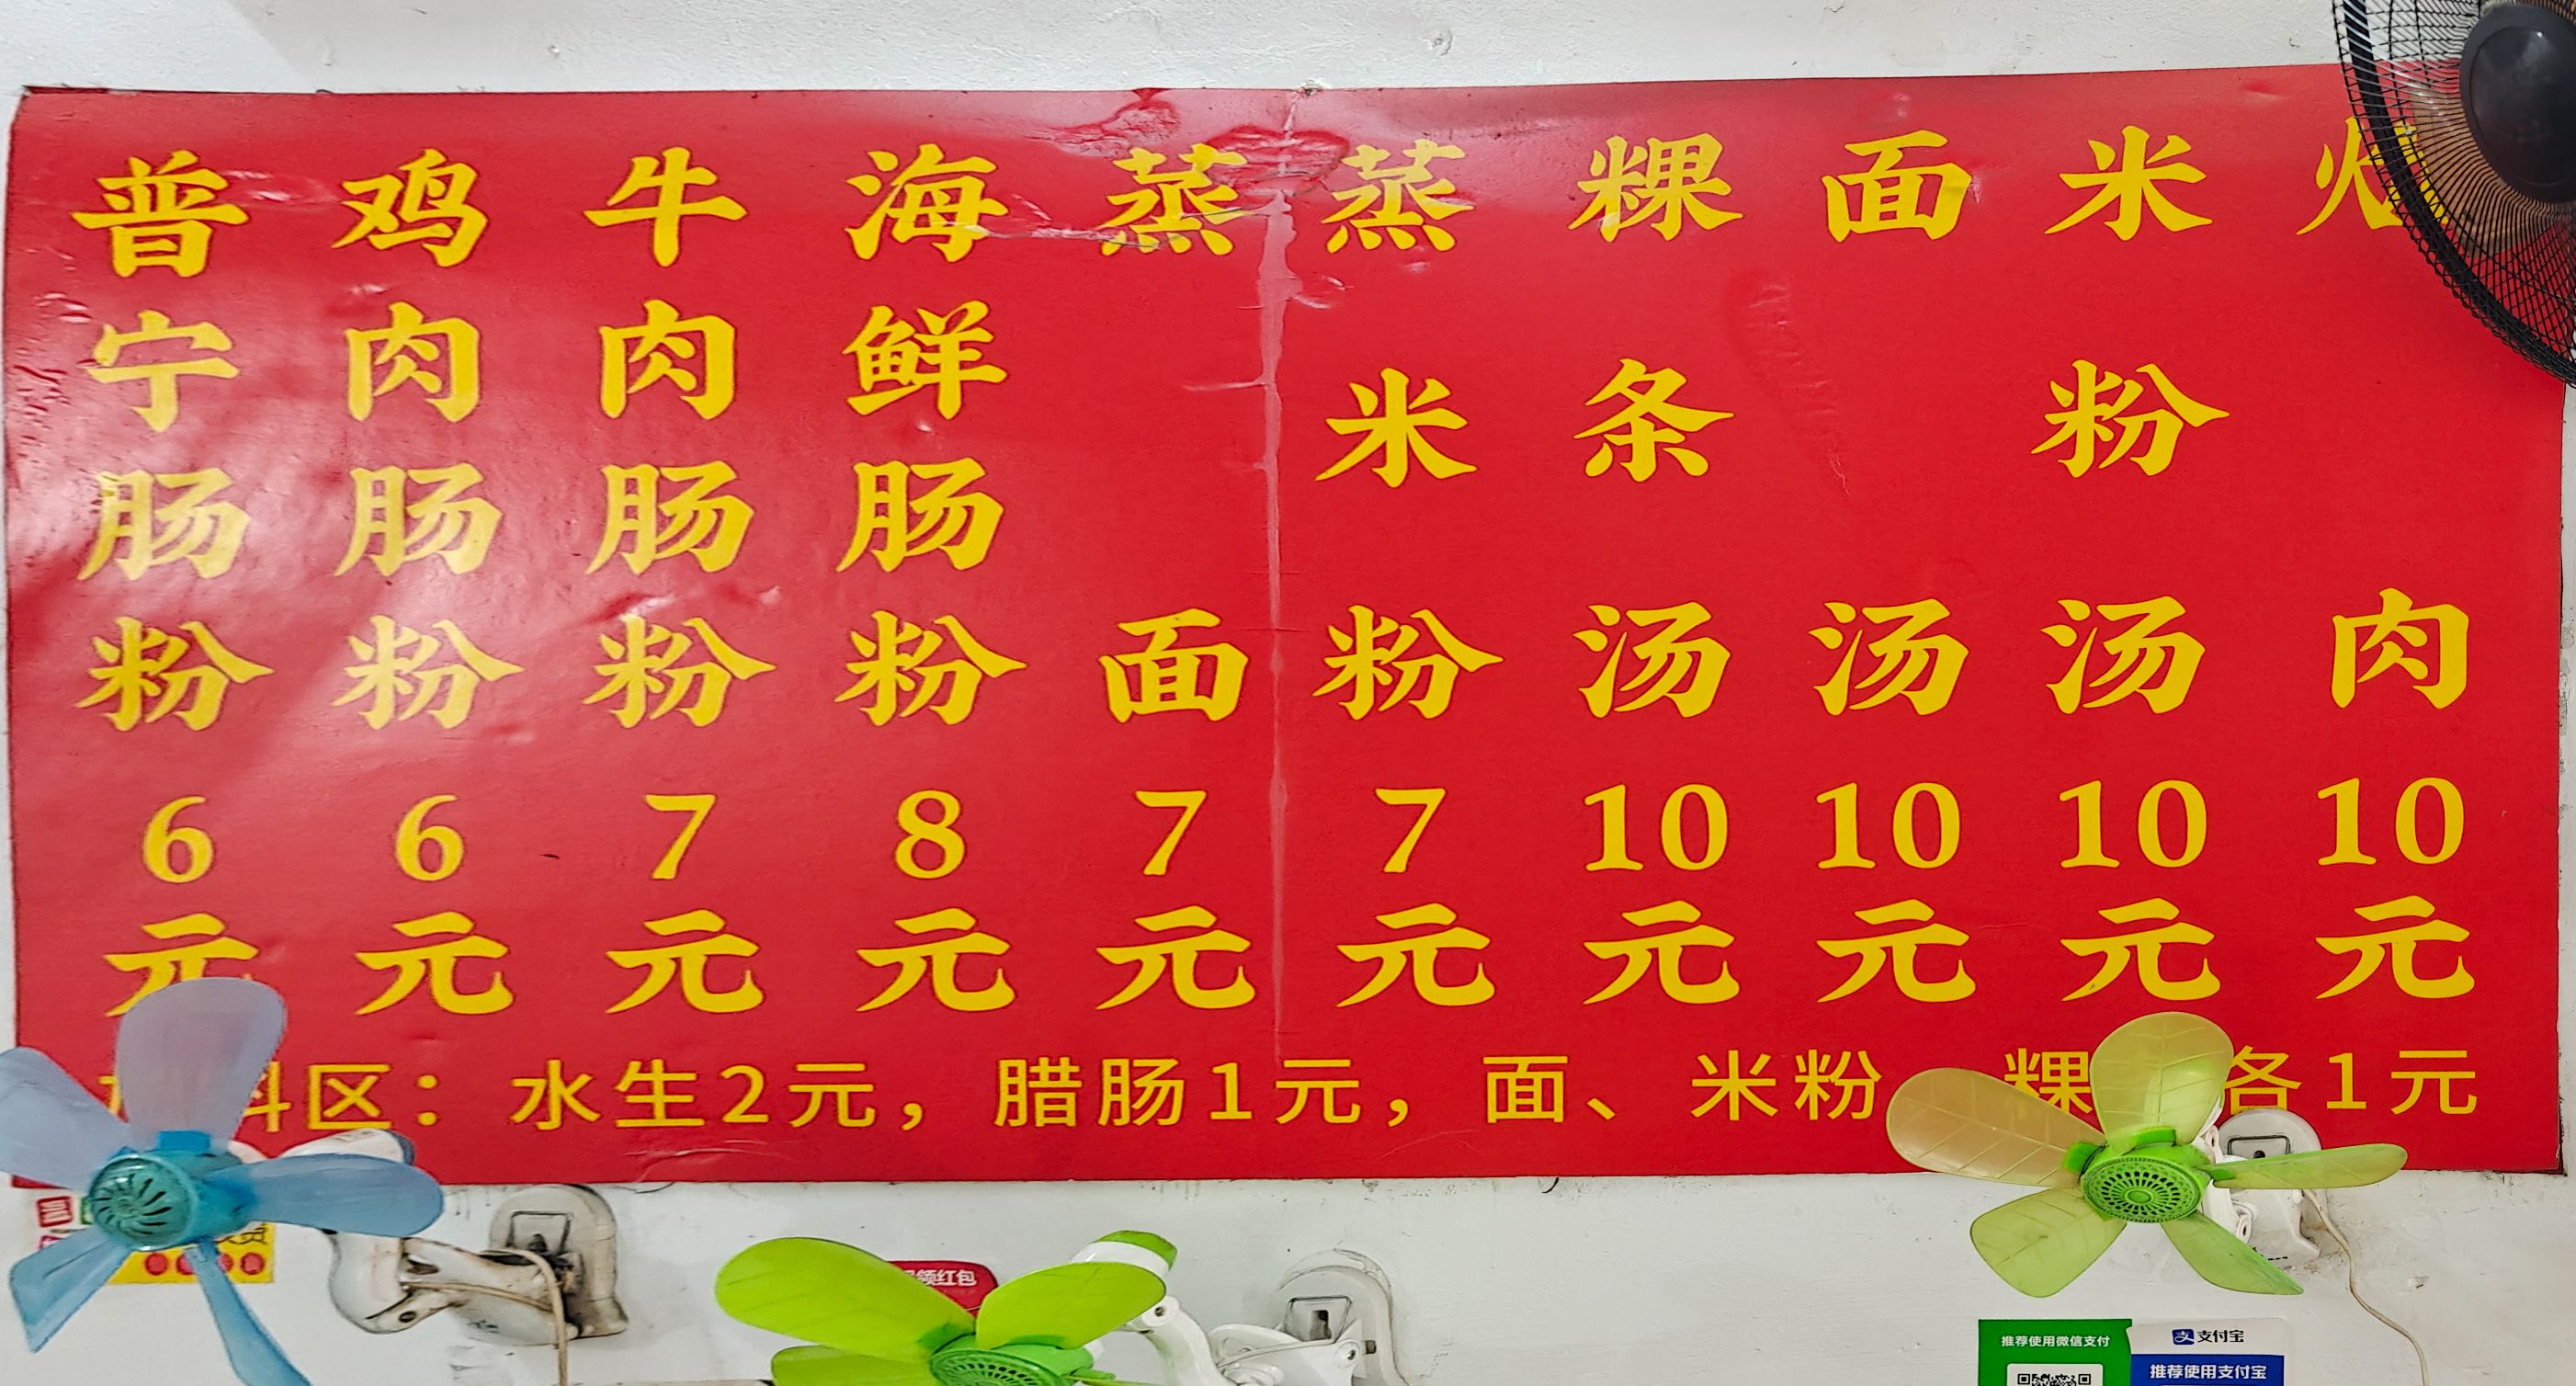 普宁肠粉6元
鸡肉肠粉6元
牛肉肠粉7元
海鲜肠粉8元
蒸面7元
蒸米粉7元
粿条汤10元
面汤10元
米粉汤10元
肉10元
区：水生2元，腊肠1元，面、米粉 粿 各1元
领红包
推荐使用微信支付
支付宝
推荐使用支付宝